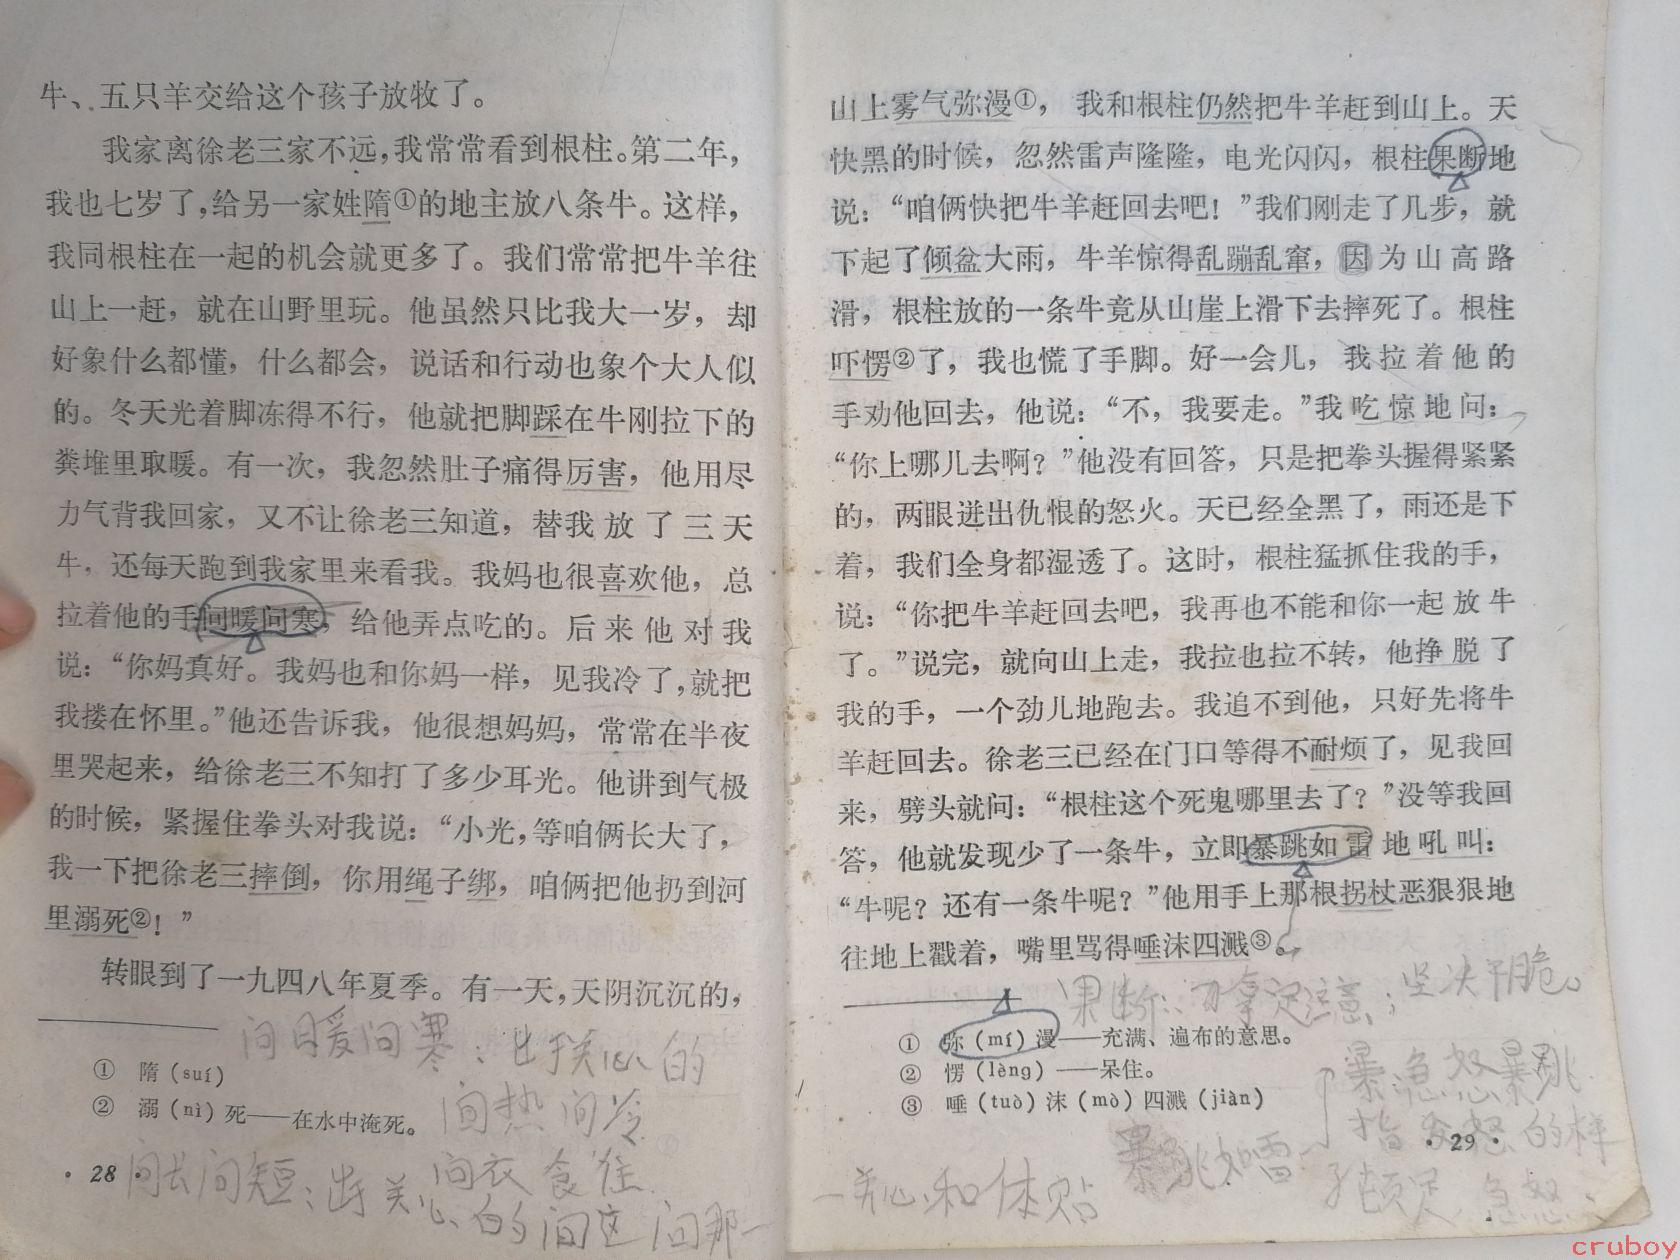 牛、五只羊交给这个孩子放牧了。
我家离徐老三家不远，我常常看到根柱。第二年，
我也七岁了，给另一家姓隋①的地主放八条牛。这样，
我同根柱在一起的机会就更多了。我们常常把牛羊往
山上一赶，就在山野里玩。他虽然只比我大一岁，却
好象什么都懂，什么都会，说话和行动也象个大人似
的。冬天光着脚冻得不行，他就把脚踩在牛刚拉下的
粪堆里取暖。有一次，我忽然肚子痛得厉害，他用尽
力气背我回家，又不让徐老三知道，替我放了三天
牛，还每天跑到我家里来看我。我妈也很喜欢他，总
拉着他的手问暖问寒，给他弄点吃的。后来他对我
说：“你妈真好。我妈也和你妈一样，见我冷了，就把
我搂在怀里。”他还告诉我，他很想妈妈，常常在半夜
里哭起来，给徐老三不知打了多少耳光。他讲到气极
的时候，紧握住拳头对我说：“小光，等咱俩长大了，
我一下把徐老三摔倒，你用绳子绑，咱俩把他扔到河
里溺死②！”
转眼到了一九四八年夏季。有一天，天阴沉沉的，
问暖问寒：出于关心的
① 隋（suí）
② 溺（nì）死——在水中淹死。
问热问冷
问衣食住
· 28 ·
问长问短：出于关心的问这问那
山上雾气弥漫①，我和根柱仍然把牛羊赶到山上。天
快黑的时候，忽然雷声隆隆，电光闪闪，根柱果断地
说：“咱俩快把牛羊赶回去吧！”我们刚走了几步，就
下起了倾盆大雨，牛羊惊得乱蹦乱窜，因为山高路
滑，根柱放的一条牛竟从山崖上滑下去摔死了。根柱
吓愣②了，我也慌了手脚。好一会儿，我拉着他的
手劝他回去，他说：“不，我要走。”我吃惊地问：
“你上哪儿去啊？”他没有回答，只是把拳头握得紧紧
的，两眼迸出仇恨的怒火。天已经全黑了，雨还是下
着，我们全身都湿透了。这时，根柱猛抓住我的手，
说：“你把牛羊赶回去吧，我再也不能和你一起放牛
了。”说完，就向山上走，我拉也拉不转，他挣脱了
我的手，一个劲儿地跑去。我追不到他，只好先将牛
羊赶回去。徐老三已经在门口等得不耐烦了，见我回
来，劈头就问：“根柱这个死鬼哪里去了？”没等我回
答，他就发现少了一条牛，立即暴跳如雷地吼叫：
“牛呢？还有一条牛呢？”他用手上那根拐杖恶狠狠地
往地上戳着，嘴里骂得唾沫四溅③。
果断：力拿定注意；坚决干脆。
① 弥（mí）漫——充满、遍布的意思。
② 愣（lèng）——呆住。
③ 唾（tuò）沫（mò）四溅（jiàn）
暴：急怒暴跳
指发怒的样
· 29 ·
暴跳如雷：
子顿足急怒
一关心和体贴
cruboy